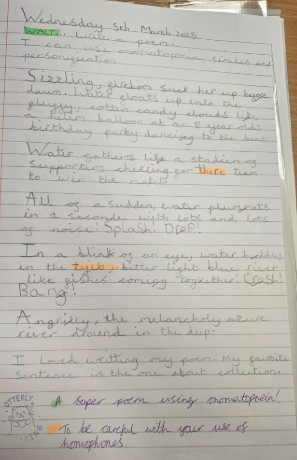 Wednesday 5th March 2018
WALT: Write a poem.
I can use onomatopoeia, similes and
personification
Sizzling, sunbom suck her up by
dawn. Water floats up into the
fluffy, cotton candy clouds like
a helium balloon at an 8 year old's
birthday party dancing to the beat.
Water gathers like a stadium of
supporters cheering for there team
to win the match.
All of a sudden, water plummets
in 2 seconds with lots and lots
of noise! Splash! Drop!
In a blink of an eye, water huddles
in the light blue river
like fishes coming together! Crash!
Bang!
Angrily, the melancholy azure
river around in the
I loved writting my poem. My favorite
sentence is the one about collection.
OTTERLY
A super poem using onomatopoeia!
To be careful with your use of
homophones.